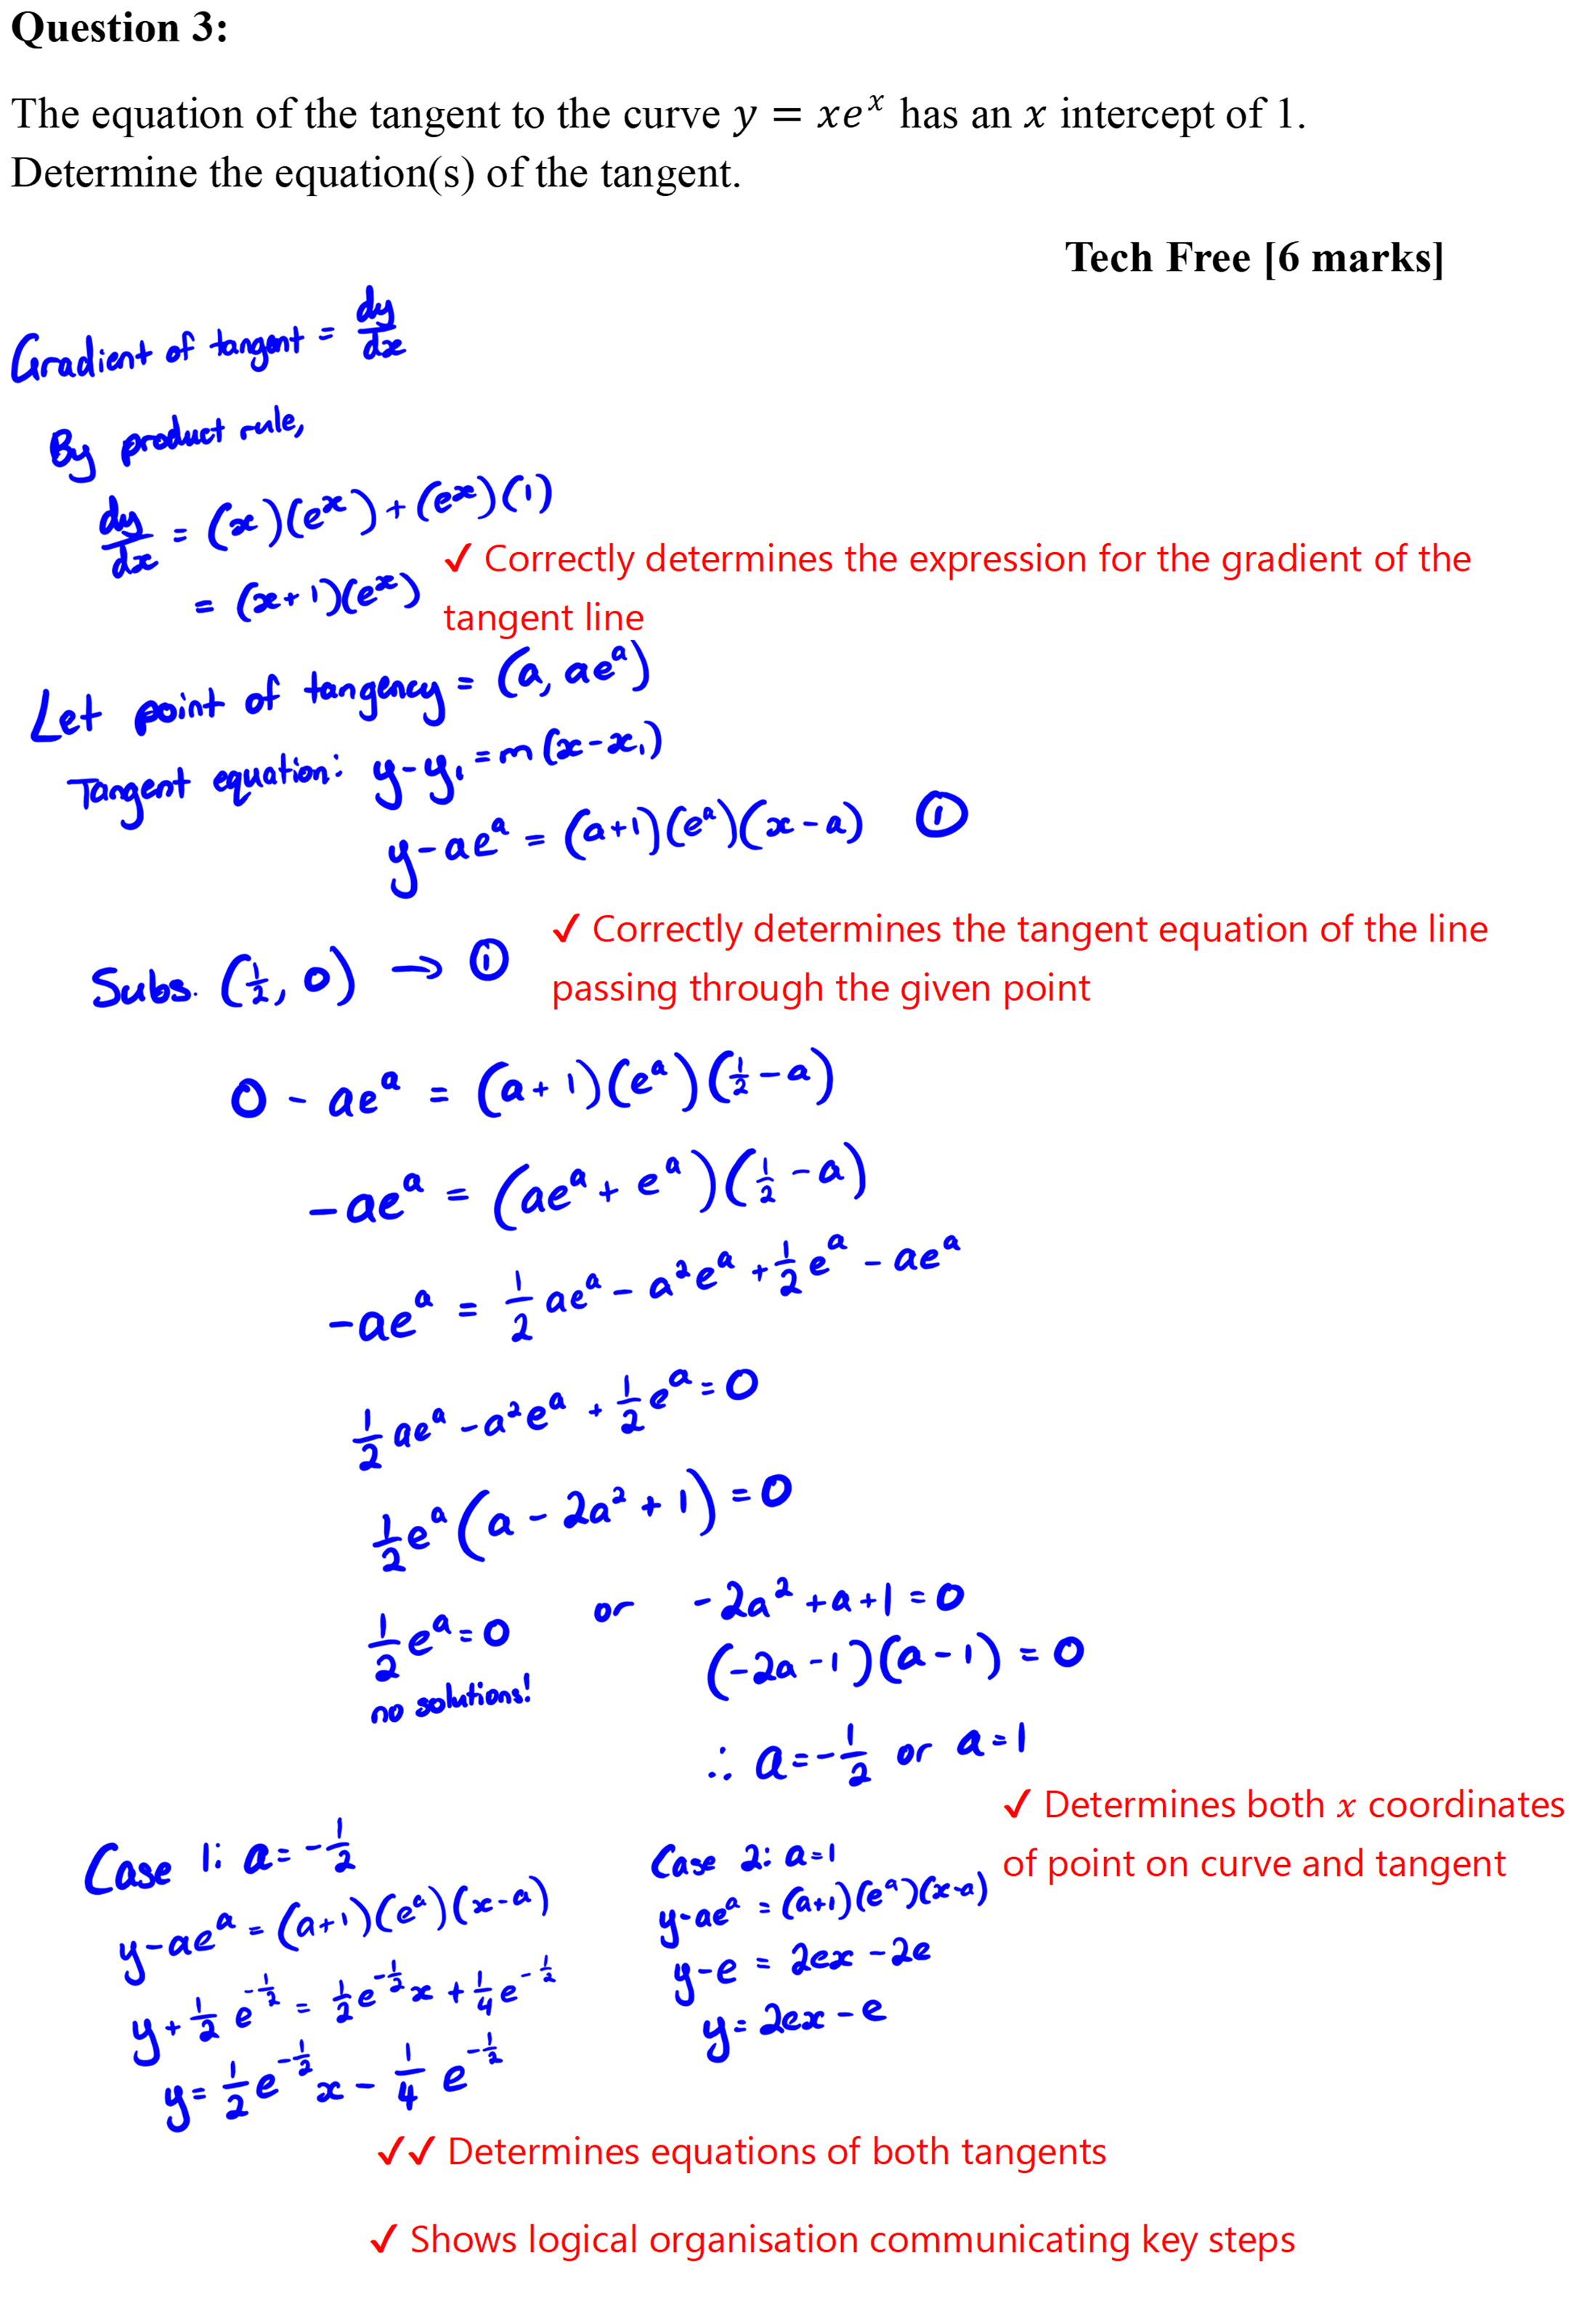 Question 3:
The equation of the tangent to the curve y = xeˣ has an x intercept of 1.
Determine the equation(s) of the tangent.
Tech Free [6 marks]
Gradient of tangent = dy/dx
By product rule,
dy/dx = (x)(eˣ) + (eˣ)(1)
= (x+1)(eˣ)
✓ Correctly determines the expression for the gradient of the
tangent line
Let point of tangency = (a, aeᵃ)
Tangent equation: y-y₁ = m(x-x₁)
y-aeᵃ = (a+1)(eᵃ)(x-a) ①
✓ Correctly determines the tangent equation of the line
passing through the given point
Subs. (1/2, 0) → ①
0 - aeᵃ = (a+1)(eᵃ)(1/2 - a)
-aeᵃ = (aeᵃ + eᵃ)(1/2 - a)
-aeᵃ = 1/2 aeᵃ - a²eᵃ + 1/2 eᵃ - aeᵃ
1/2 aeᵃ - a²eᵃ + 1/2 eᵃ = 0
1/2 eᵃ(a - 2a² + 1) = 0
1/2 eᵃ = 0 or -2a² + a + 1 = 0
no solutions! (-2a-1)(a-1) = 0
∴ a = -1/2 or a = 1
✓ Determines both x coordinates
of point on curve and tangent
Case 1: a = -1/2
y-aeᵃ = (a+1)(eᵃ)(x-a)
y + 1/2 e^(-1/2) = 1/2 e^(-1/2) x + 1/4 e^(-1/2)
y = 1/2 e^(-1/2) x - 1/4 e^(-1/2)
Case 2: a=1
y-aeᵃ = (a+1)(eᵃ)(x-a)
y-e = 2ex - 2e
y = 2ex - e
✓✓ Determines equations of both tangents
✓ Shows logical organisation communicating key steps